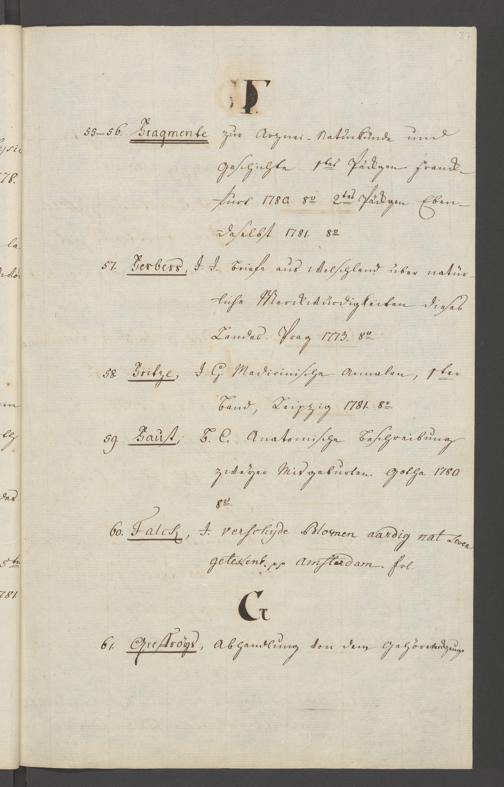 87
F
55–56. Fragmente zur Arznei-Naturkunde und
Geschichte. 1tes Päckgen Franck-
furt 1780. 8º 2tes Päckgen Eben-
daselbst 1781. 8º
57. Ferbers, J. J. Briefe aus Welschland über natür
liche Merckwürdigkeiten dieses
Landes. Prag 1773. 8º
58. Fritze, J. G. Medicinische Annalen, 1ter
Band, Leipzig 1781. 8º
59. Faust, B. C. Anatomische Beschreibung
zweyer Misgeburten. Gotha 1780
8º
60. Falck, J. verscheyde Blomen aardig nat Leven
getekent. Amsterdam. fol.
G
61. Abhandlung von dem